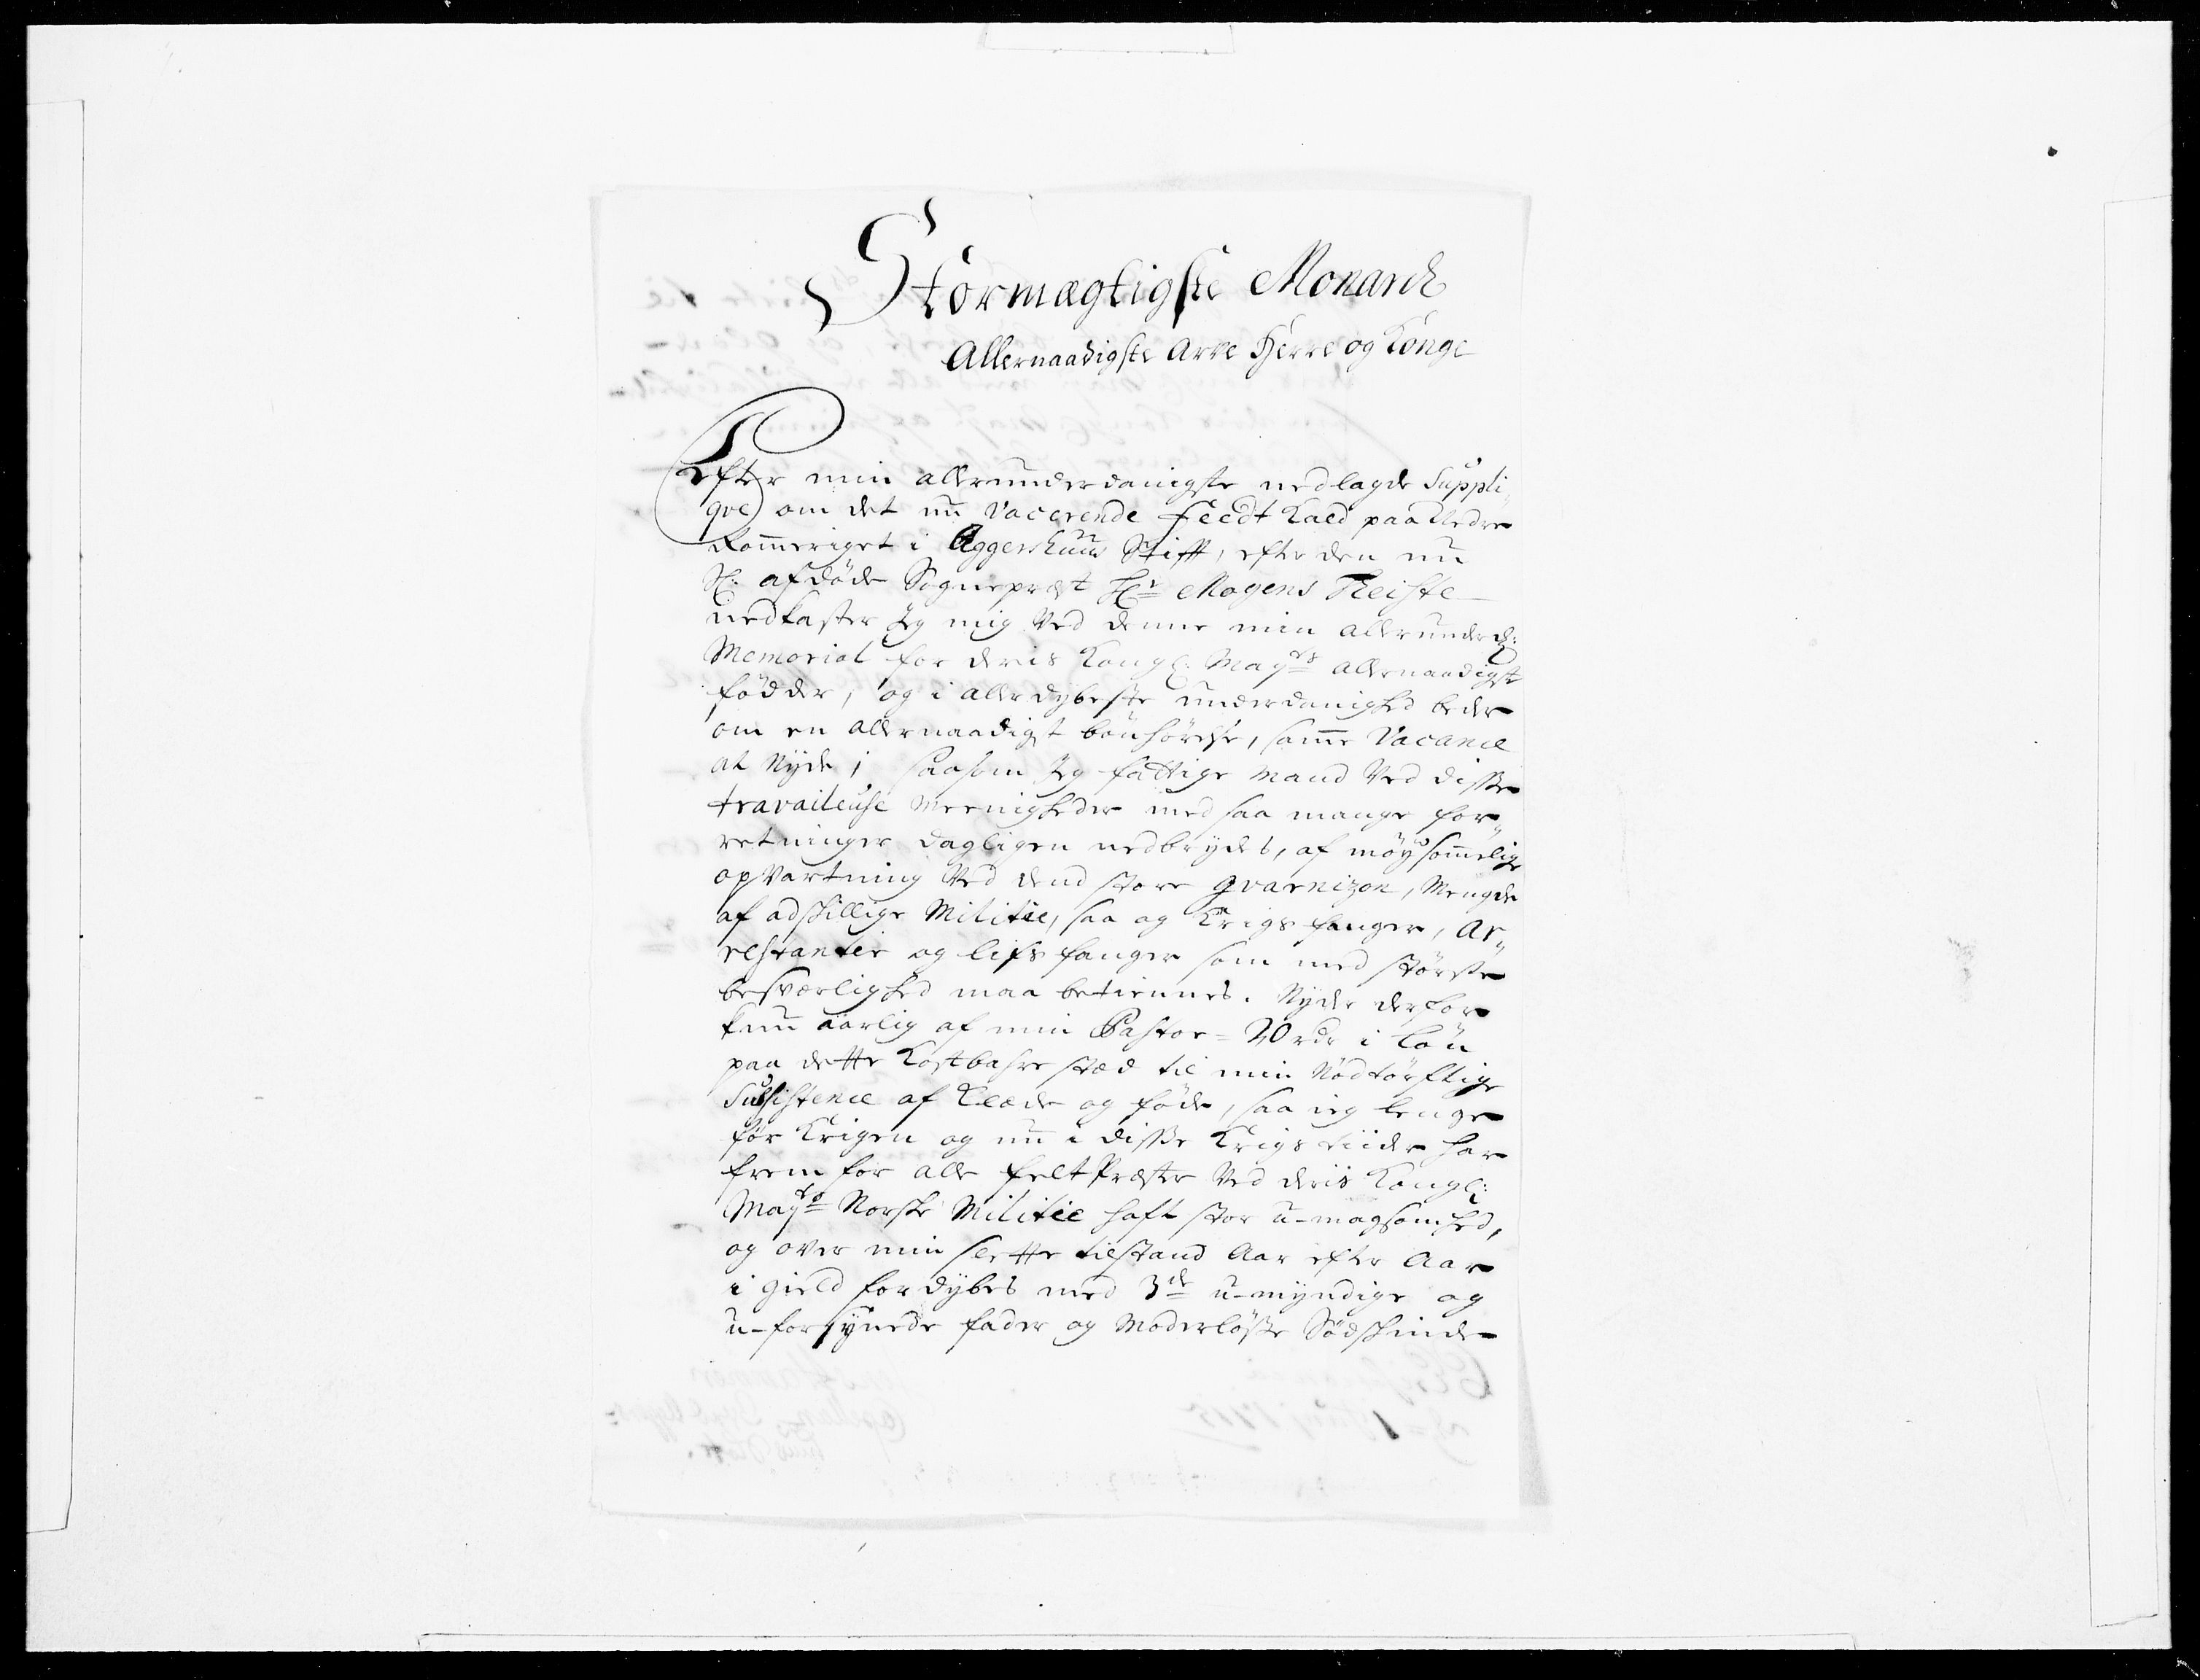 Stormægtigste Monarch
Allernaadigste Arve Herre og Konge
Efter min allerunderdanigste nedlagde Suppli¬
qve om det nu Vacerende feedt Kald paa Nedre
Rommeriget i Aggershuus Stifft, efter den nu
Sl. afdøde Sognepræst Hr. Mogens Theiste
nedkaster Jeg mig Ved denne min allerunderd:
Memorial for deris Kongl: Mayts allernaadigst
fødder, og i allerdybeste underdanighed beder
om en allernaadigst bønhørelse, samme Vacance
at Nyde, saasom Jeg fattige Mand Ved disse
travaileuse Meenigheder med saa mange for„
retninger dagligen nedbrydes, af møysommelige
opVartning Ved dend store gvarnizon, Mengde
af adskillige Militie, saa og Krigs fanger, Ar„
restanter og lifs fanger som med største
besværlighed maa betiennes. Nyder derfor
kun aarlig af min Pastor = 20 rdr i løn
paa dette Kostbahre stæd til min Nødtørftige
Subsistence af Klæde og føde, saa ieg lenge
før Krigen og nu i disse Krigs tiider har
frem for alle felt Præster Ved deris Kongl:
Mayts Norske Militie haft stor u-magsomhed,
og over min slette tilstand Aar efter Aar
i gield fordybes med 3de u-myndige og
u-forsynede fader og Moderløse Sødskinde